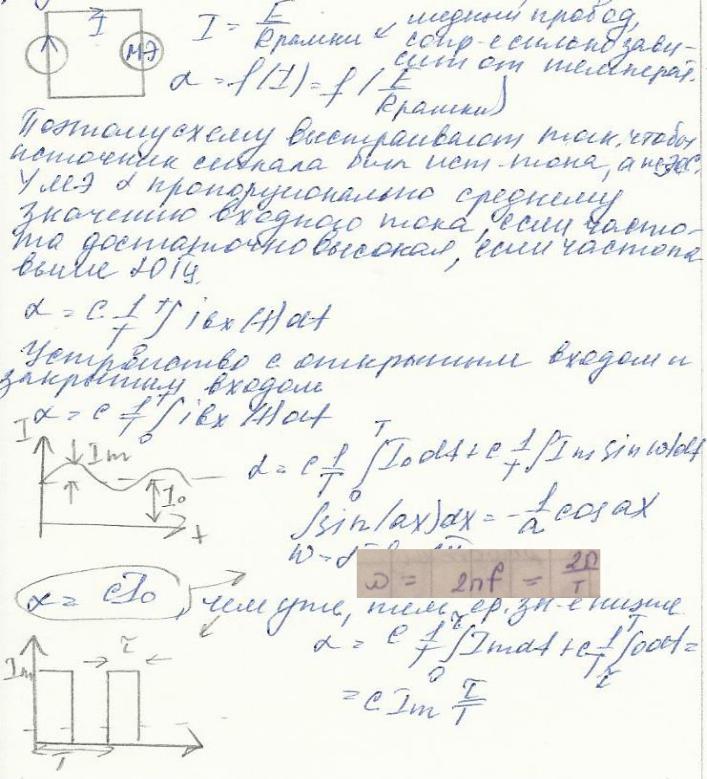 I
МЭ
I = E / Rрамки ← медный провод,
сопр-е сильно зави-
сит от температ.
α = f(I) = f(E / Rрамки)
Поэтому схему выстраивают так, чтобы
источник сигнала был ист. тока, а не ЭДС.
У МЭ α пропорционально среднему
значению входного тока, если часто-
та достаточно высокая, если частота
выше 20 Гц.
α = c 1/T ∫ iвх(t)dt
Устройство с открытым входом и
закрытым входом
α = c 1/T ∫₀ᵀ iвх(t)dt
I
Im
I₀
t
α = c 1/T ∫₀ᵀ I₀dt + c 1/T ∫ Im sin ωt dt
∫sin(ax)dx = -1/a cos ax
ω =
ω = 2πf = 2π/T
α = cI₀, чем уже, тем ср. зн-е ниже
Im
τ
T
α = c 1/T ∫₀^τ Imdt + c 1/T ∫_τ^T 0dt =
= c Im τ/T